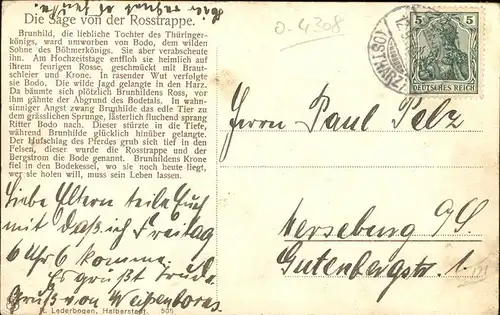 Die Sage von der Rosstrappe.
Brunhild, die liebliche Tochter des Thüringer-
königs, ward umworben von Bodo, dem wilden
Sohne des Böhmerkönigs. Sie aber verabscheute
ihn. Am Hochzeitstage entfloh sie heimlich auf
ihrem feurigen Rosse, geschmückt mit Braut-
schleier und Krone. In rasender Wut verfolgte
sie Bodo. Die wilde Jagd gelangte in den Harz.
Da bäumte sich plötzlich Brunhildens Ross, vor
ihm gähnte der Abgrund des Bodetals. In wahn-
sinniger Angst zwang Brunhilde das edle Tier zu
dem grässlichen Sprunge, lästerlich fluchend sprang
Ritter Bodo nach. Dieser stürzte in die Tiefe,
während Brunhilde glücklich hinüber gelangte.
Der Hufschlag des Pferdes grub sich tief in den
Felsen, dieser wurde die Rosstrappe und der
Bergstrom die Bode genannt. Brunhildens Krone
fiel in den Bodekessel, wo sie noch heute liegt,
wer sie holen will, muss sein Leben lassen.
Liebe Eltern teile Euch
mit daß ich Freitag
6 Uhr 6 komme.
Es grüßt Trude
Gruß von
Lederbogen, Halberstadt. 505
o. 4308
5 5
DEUTSCHES REICH
(OST HARZ)
Herrn Paul Pelz
Merseburg a/S.
Gutenbergstr. 1.